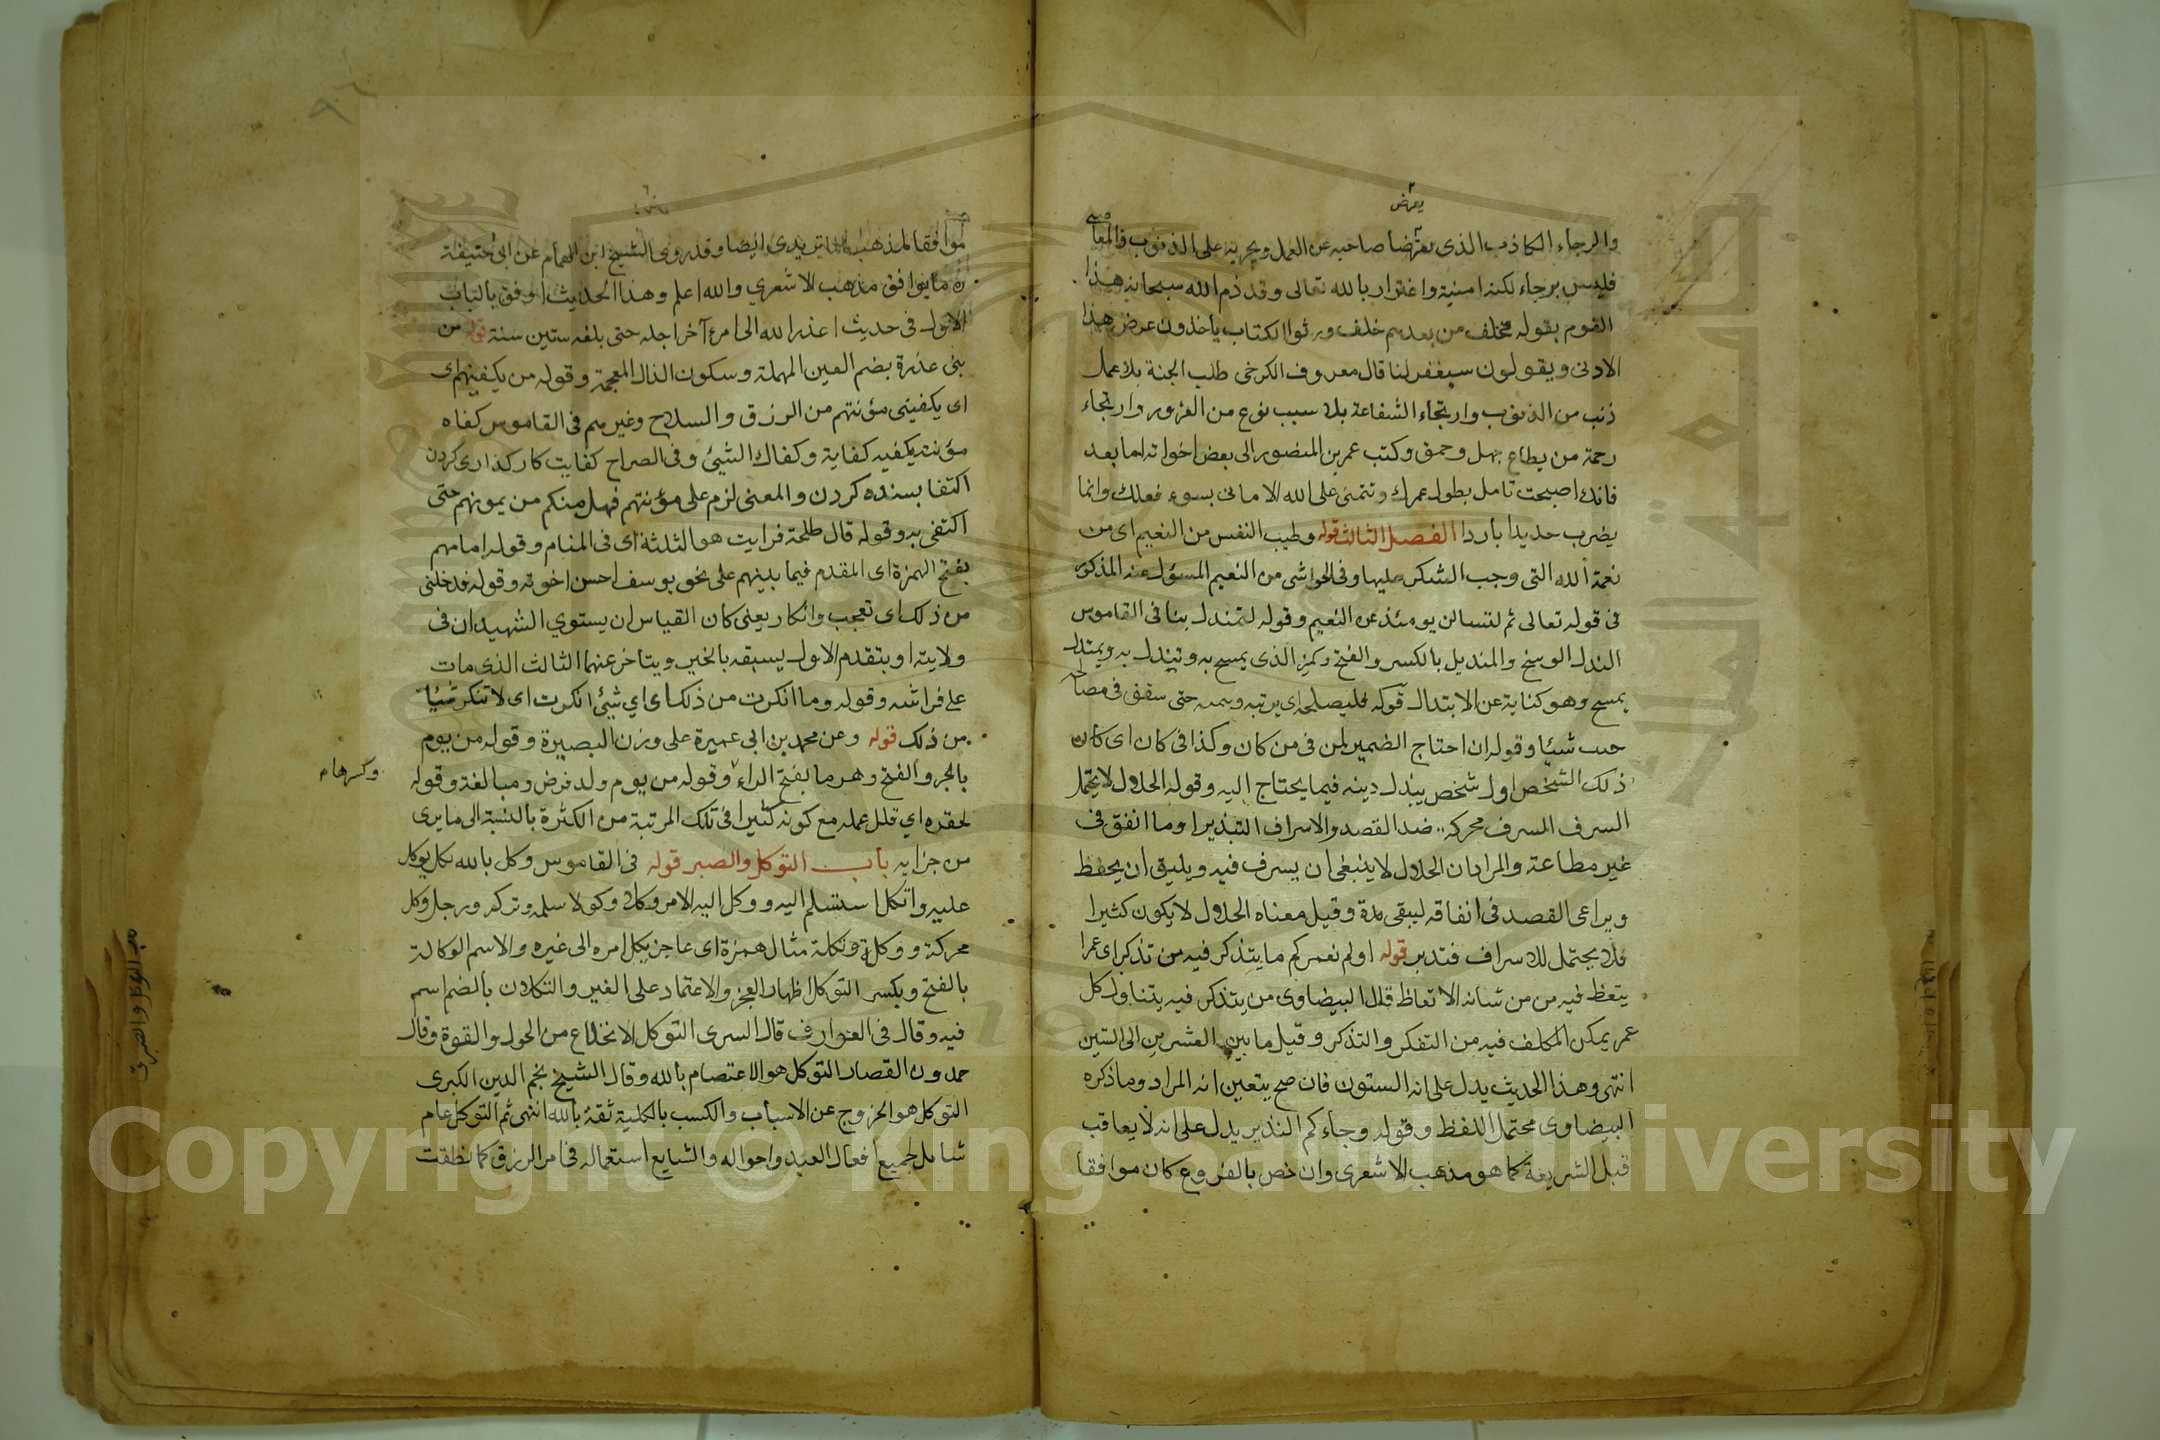 يعرض
والرجاء الكاذب الذي يعرضا صاحبه عن العمل ويجريه على الذنوب والمعاصي
فليس برجاء لكنه امنية واغترار بالله تعالى وقد ذم الله سبحانه هذا
القوم بقوله فخلف من بعدهم خلف ورثوا الكتاب يأخذون عرض هذا
الادنى ويقولون سيغفر لنا قال معروف الكرخى طلب الجنة بلا عمل
ذنب من الذنوب وارتجاء الشفاعة بلا سبب نوع من الغرور وارتجاء
رحمة من يطاع جهل وحمق وكتب عمر بن المنصور الى بعض اخوانه اما بعد
فانك اصبحت تأمل بطول عمرك وتتمنى على الله الامانى بسوء فعلك وانما
يضرب حديدا باردا الفصل الثالث قوله وطيب النفس من النعيم اى من
نعمة الله التى وجب الشكر عليها وفى الحواشى من النعيم المسؤل عنه المذكور
فى قوله تعالى ثم لتسالن يومئذ عن النعيم وقوله لتمندل بنا فى القاموس
الندل الوسخ والمنديل بالكسر والفتح وكمنبر الذى يمسح به وتندل به وتمندل
يمسح وهو كناية عن الابتذال قوله فليصلحه اى يرتبه حتى سقفى فى مصالحه
شيئا وقوله ان احتاج الضمير لمن فى من كان وكذا فى كان اى كان
ذلك الشخص اول شخص يبذل دينه فيما يحتاج اليه وقوله الحلال لا يحتمل
السرف السرف محركة ضد القصد والاسراف التبذير او ما انفق فى
غير طاعة والمراد ان الحلال لا ينبغى ان يسرف فيه ويليق ان يحفظ
ويراعى القصد فى انفاقه ليبقى مدة وقيل معناه الحلال لا يكون كثيرا
فلا يحتمل للاسراف فتدبر قوله اولم نعمركم ما يتذكر فيه من تذكر اى عمرا
يتعظ فيه من من شانه الاتعاظ قال البيضاوى من يتذكر فيه يتناول كل
عمر يمكن المكلف فيه من التفكر والتذكر وقيل ما بين العشرين الى الستين
انتهى وهذا الحديث يدل على انه الستون فان صح يتعين انه المراد وما ذكره
البيضاوى محتمل اللفظ وقوله وجاءكم النذير يدل على انه لا يعاقب
قبل الشريعة كما هو مذهب الاشعرى وان خص بالفروع كان موافقا
موافقا لمذهب الماتريدى ايضا وقد روى الشيخ ابن الهمام عن ابى حنيفة
ره ما يوافق مذهب الاشعري والله اعلم وهذا الحديث اوفق بالباب
الاول فى حديث اعذر الله الى امرئ آخر اجله حتى بلغه ستين سنة قوله من
بنى عذرة بضم العين المهملة وسكون الذال المعجمة وقوله من يكفينهم اى
اى يكفينى مؤنتهم من الرزق والسلاح وغيرهم فى القاموس كفاه
مؤنته يكفيه كفاية وكفاك الشيئ وفى الصراح كفايت كار كذارى كردن
اكتفا بسنده كردن والمعنى لزم على مؤنتهم فهل منكم من يمونهم حتى
اكتفى به وقوله قال طلحة فرايت هو الثلثة اى فى المنام وقوله امامهم
بفتح الهمزة اى المقدم فيما بينهم على نحو يوسف احسن اخوته وقوله فدخلنى
من ذلك اى تعجب وانكار يعنى كان القياس ان يستوي الشهيدان فى
ولايته او يتقدم الاول يسبقه بالخير ويتاخر عنهما الثالث الذى مات
على فراشه وقوله وما انكرت من ذلك اى اي شيئ انكرت اى لا تنكر شيئا
من ذلك قوله وعن محمد بن ابى عميرة على وزن البصيرة وقوله من يوم
بالجر والفتح وهرما بفتح الراء وقوله من يوم ولد فرض ومبالغة وقوله
وكسرها م
لحقره اي قلل عمله مع كونه كثيرا فى تلك المرتبة من الكثرة بالنسبة الى ما يرى
من جزايه باب التوكل والصبر قوله فى القاموس وكل بالله يكل وتوكل
عليه واتكل استسلم اليه ووكل اليه الامر وكلا ووكولا سلمه وتركه ورجل وكل
محركة ووكلة وتكلة مثال همزة اى عاجز يكل امره الى غيره والاسم الوكالة
بالفتح ويكسر التوكل اظهار العجز والاعتماد على الغير والتكلان بالضم اسم
فيه وقال فى العوارف قال السرى التوكل الانخلاع من الحول والقوة وقال
حمدون القصار التوكل هو الاعتصام بالله وقال الشيخ نجم الدين الكبرى
التوكل هو الخروج عن الاسباب والكسب بالكلية ثقة بالله انتهى ثم التوكل عام
شامل لجميع افعال العبد واحواله والشايع استعماله فى امر الرزق كما نطقت
باب التوكل والصبر
Copyright © King Saud University